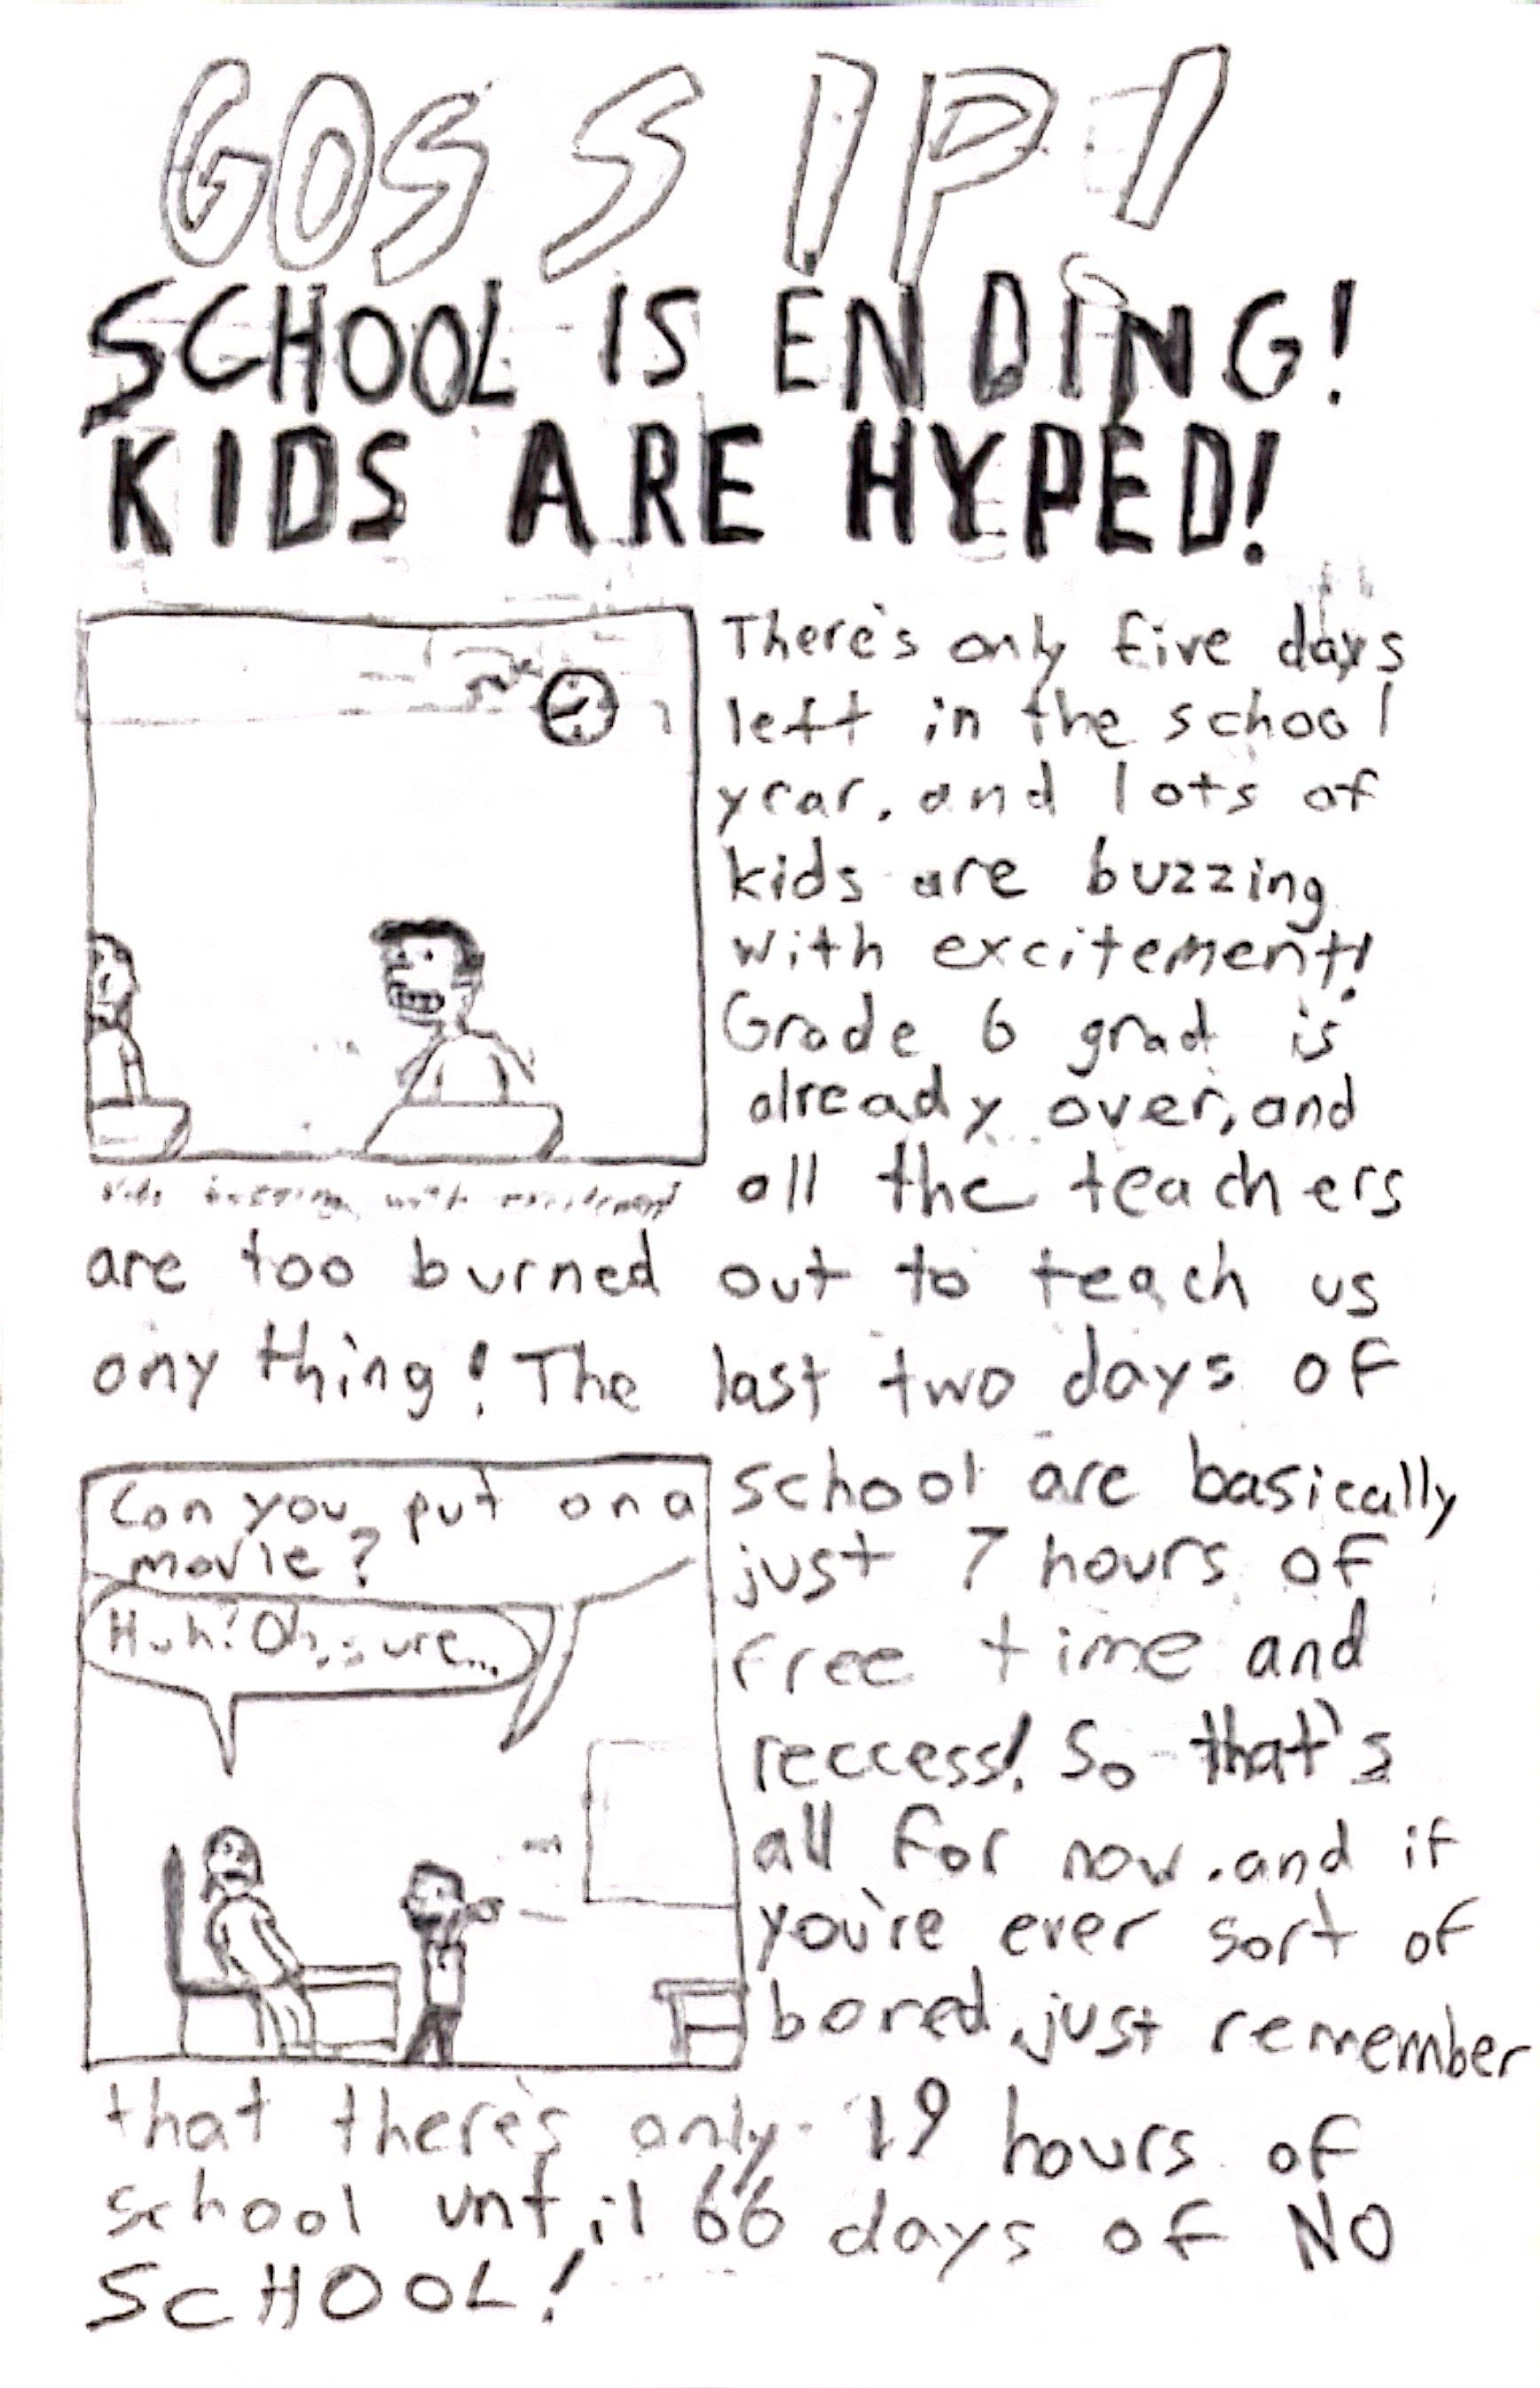 GOSSIP!
SCHOOL IS ENDING!
KIDS ARE HYPED!
There's only five days
left in the school
year, and lots of
kids are buzzing
with excitement!
Grade 6 grad is
already over, and
all the teachers
kids buzzing with excitement
are too burned out to teach us
any thing! The last two days of
school are basically
just 7 hours of
free time and
reccess! So that's
all for now. and if
you're ever sort of
bored, just remember
Can you put on a
movie?
Huh? Oh, sure...
that there's only 19 hours of
school until 66 days of NO
SCHOOL!